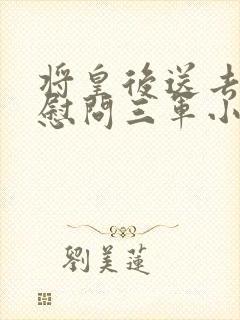 將皇後送去
慰問三軍小
劉美蓮